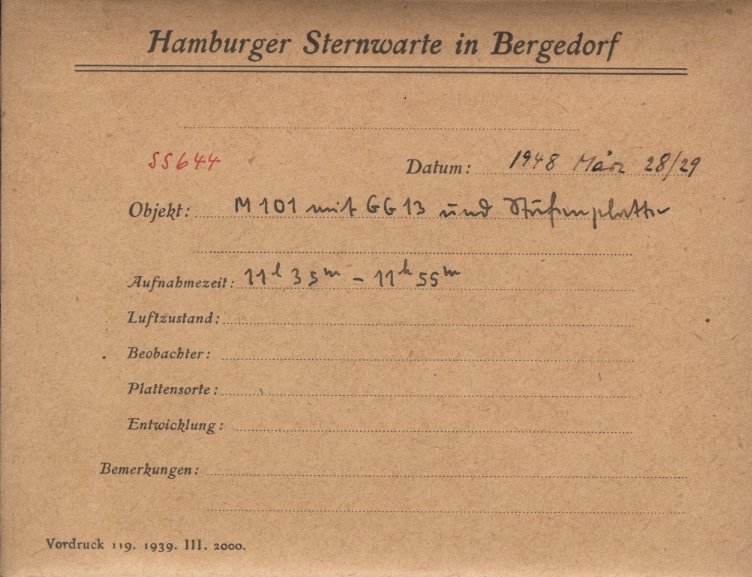 Hamburger Sternwarte in Bergedorf
SS644
Datum: 1948 März 28/29
Objekt: M 101 mit GG 13 und Stufenplatte
Aufnahmezeit: 11h 35m – 11h 55m
Luftzustand:
Beobachter:
Plattensorte:
Entwicklung:
Bemerkungen:
Vordruck 119. 1939. III. 2000.